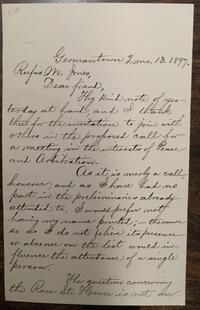 Germantown 2 mo. 13. 1897.
Rufus M. Jones,
Dear friend,
Thy kind note of yes-
terday at hand, and I thank
thee for the invitation to join with
others in the proposed call for
a meeting in the interests of Peace
and Arbitration.
As it is merely a call,
however, and as I have had no
part in the preliminaries already
attended to, I would prefer not
having my name printed;—the more
so as I do not believe its presence
or absence on the list would in-
fluence the attendance of a single
person.
The question concerning
the Race St. House is not an